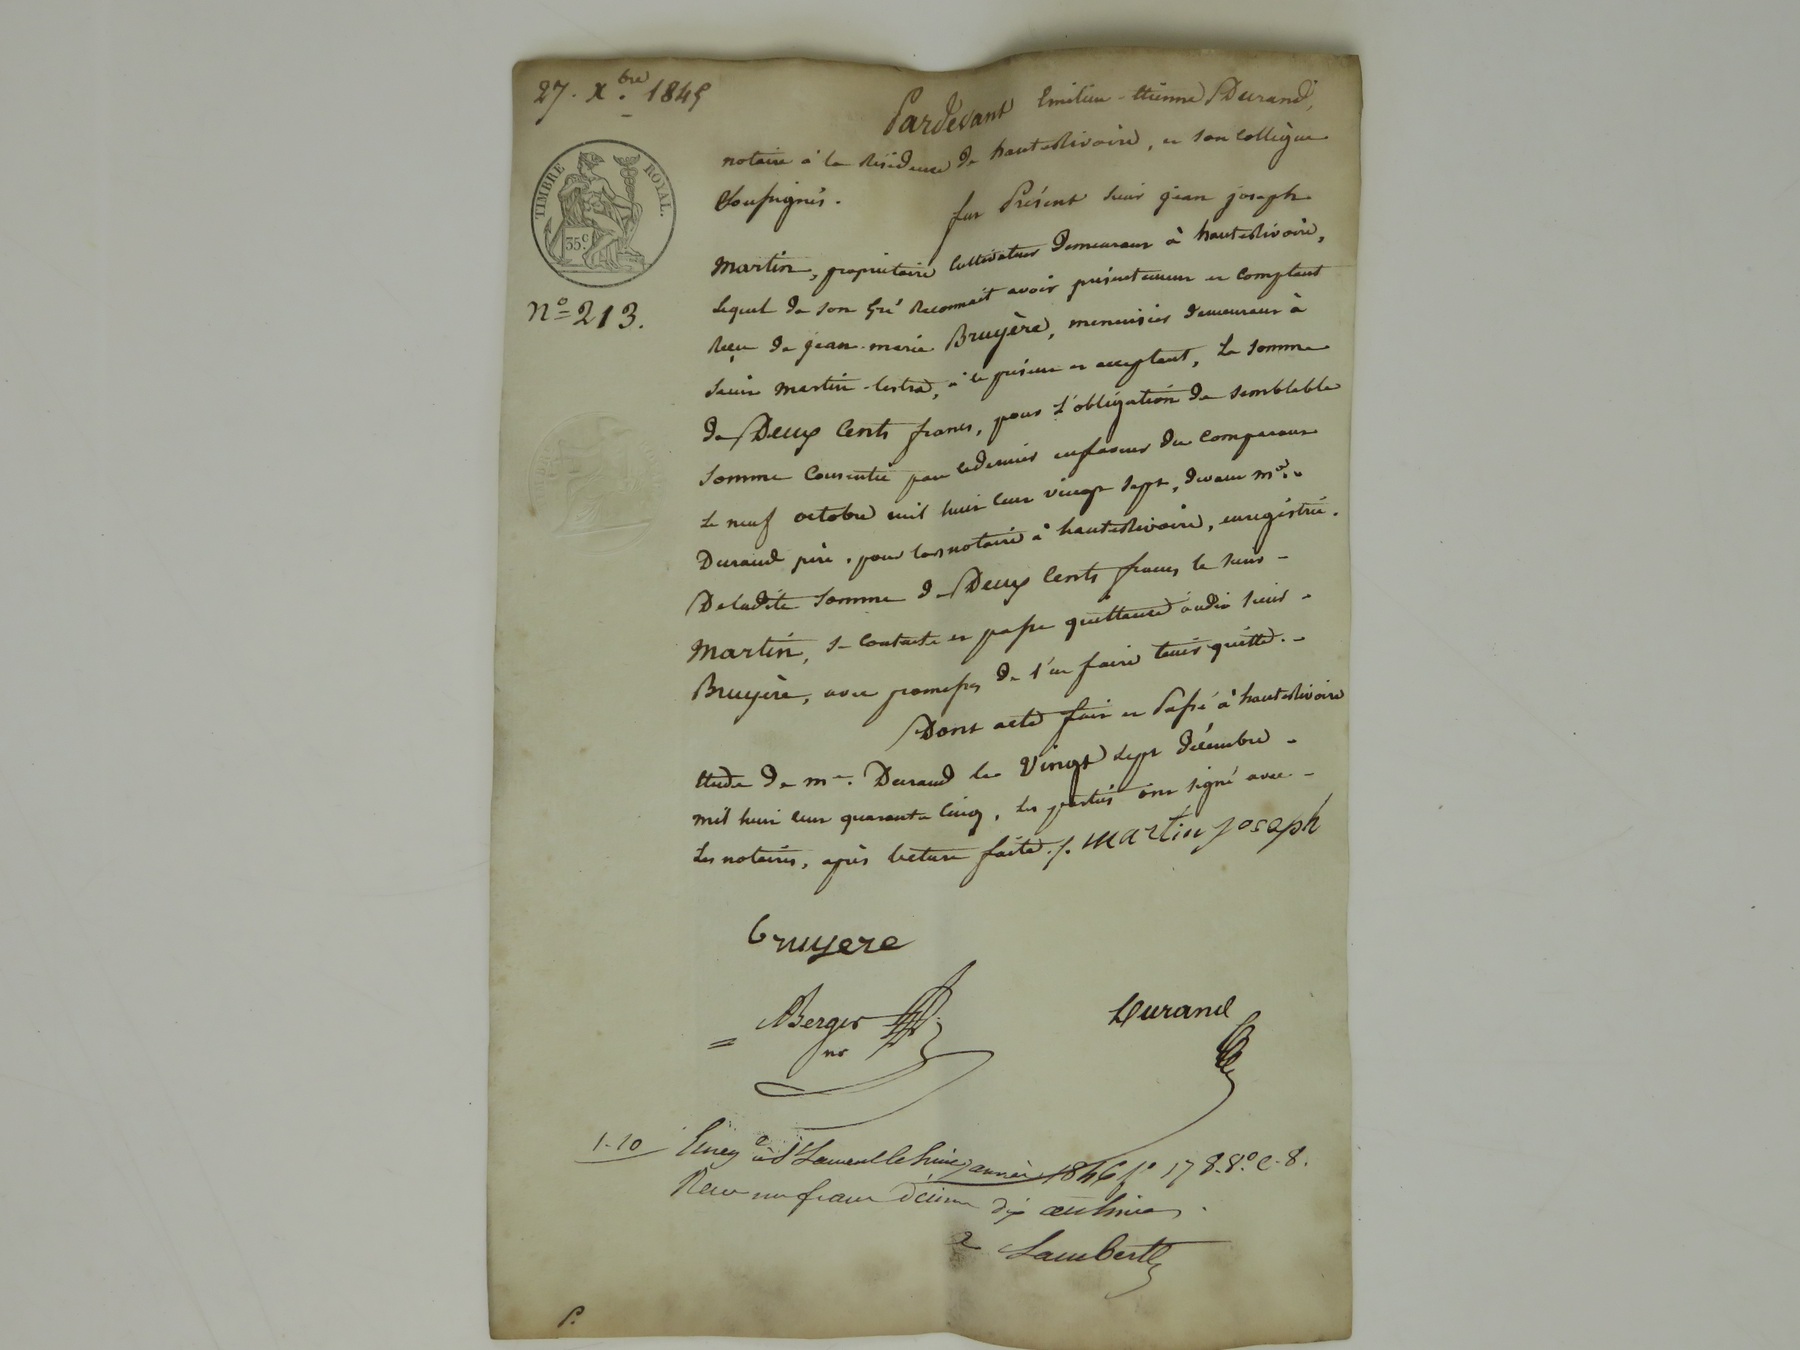 27. Xbre 1845
Pardevant Emilien-Etienne Durand,
notaire à la Résidence de hauteRivoire, et son collègue
Soussignés.
TIMBRE ROYAL.
35 c.
fut Présent sieur jean joseph
Martin, propriétaire Cultivateur demeurant à hauteRivoire,
Lequel de son Gré Reconnait avoir présentement et comptant
N° = 213.
Reçu de jean-marie Bruyère, menuisier demeurant à
Saint martin-lestra, à ce présent et acceptant, La somme
de Deux Cents francs, pour L'obligation de semblable
Somme Consentie par ce dernier en faveur du comparant
Le neuf octobre mil huit cent vingt sept, devant me.
Durand père, pour lors notaire à hauteRivoire, enregistrée.
De ladite Somme de Deux Cents francs le sieur -
Martin, se contente et passe quittance audit sieur -
Bruyère, avec promesse de l'en faire tenir quitte. -
Dont acte fait et Passé à hauteRivoire
Etude de me. Durand le Vingt sept décembre -
mil huit cent quarante Cinq, Les parties ont signé avec -
Les notaires, après lecture faite./. martin joseph
bruyere
Berger
nre
Durand
1-10 Enreg é à St Laurent le janvier 1846 f° 178. v°. c. 8.
Reçu un franc décime dix centimes.
Lambert
P.